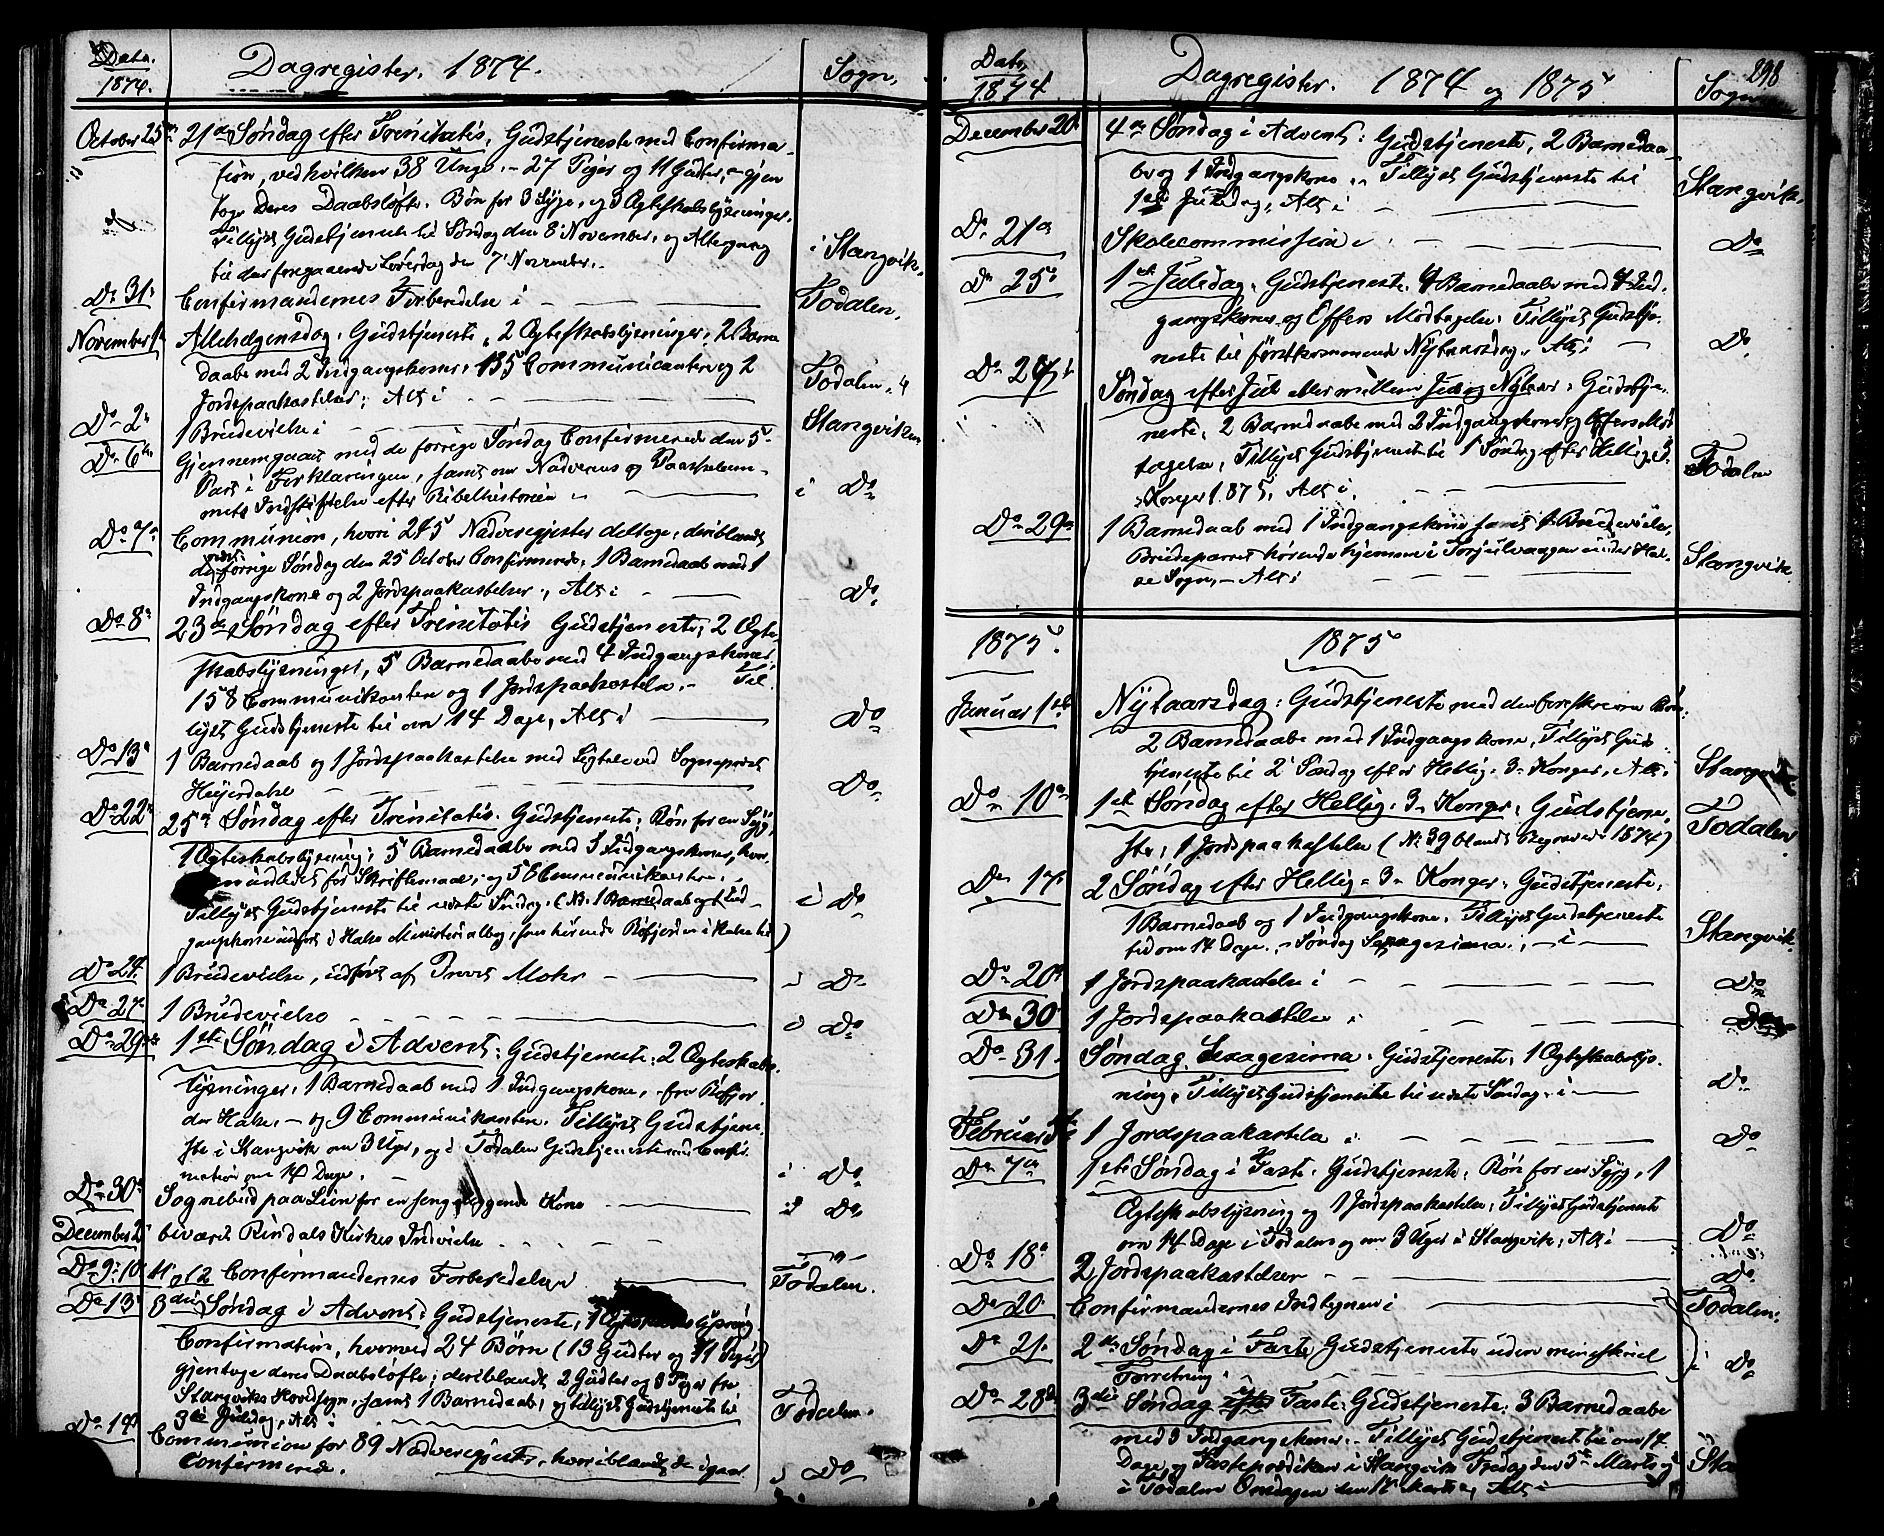 Dato. 1874. Dagregister. 1874. Sogn.
October 25de 21de Søndag efter Trinitatis, Gudstjeneste med Confirma-
tion, ved hvilken 38 Unge, - 27 Piger og 11 Gutter, - gjen
toge Deres Daabsløfte. Bøn for 3 Syge, og 3 Ægteskabslysninger.
Tillyst Gudstjeneste til Søndag den 8 November, og Altergang
til den foregaaende Løverdag den 7 November. - i Stangvik.
Do 31. Confirmandernes Forberedelse i Todalen.
November 1. Allehelgensdag, Gudstjeneste, 2 Ægteskabslysninger, 2 Barne
daabe med 2 Indgangskoner, 135 Communicanter og 2
Jordspaakastelser; Alt i Todalen.
Do 2. 1 Brudevielse i Stangviken
Do 6te Gjennemgaaet med de forrige Søndag Confirmerede den 5te
Part i Forklaringen, samt om Nadverens og Paaskelam-
mets Indstiftelse efter Bibelhistorien i Do
Do 7de Communion, hvori 245 Nadvergjester deltoge, deriblandt
de forrige Søndag den 25 October Confirmerede, 1 Barnedaab med 1
Indgangskone og 2 Jordspaakastelser, Alt i Do.
Do 8. 23de Søndag efter Trinitatis Gudstjeneste; 2 Ægte-
skabslysninger, 5 Barnedaabe med 4 Indgangskoner,
158 Communikanter og 1 Jordspaakastelse. - Til
lyst Gudstjeneste til om 14 Dage, Alt i Do
Do 13. 1 Barnedaab og 1 Jordspaakastelse med Ligtale ved Sognepræst
Heyerdahl Do.
Do 22. 25de Søndag efter Trinitatis. Gudstjeneste; Bøn for en Syg,
1 Ægteskabslysning; 5 Barnedaabe med 5 Indgangskoner,
for Skriftemaal; og 58 Communikanter.
Tillyst Gudstjeneste til næste Søndag. (NB. 1 Barnedaab og 1 Ind-
gangskone indført i Halse Ministerialbog, i Do
Do 24. 1 Brudevielse, udført af Provst Mohr i Do
Do 27. 1 Brudevielse i Do
Do 29. 1ste Søndag i Advent: Gudstjeneste; 2 Ægteskabs-
lysninger, 1 Barnedaab med 1 Indgangskone, - fra
Halse, - og 9 Communikanter. Tillyst Gudstjene-
ste i Stangvik om 3 Uger, og i Todalen Gudstjeneste med Confir-
mation om 14 Dage. - i Do
Do 30. Sognebud paa Lien for en sengeliggende Kone i Do.
December 2. bivaaret Rindals Kirkes Indvielse
Do 9. 10. 11 og 12 Confirmandernes Forberedelse Todalen.
Do 13 3die Søndag i Advent: Gudstjeneste, 1 Ægteskabslysning,
Confirmation, hvorved 24 Børn (13 Gutter og 11 Piger)
gjentoge deres Daabsløfte; deriblandt 2 Gutter og Piger fra
Stangviks Hovedsogn, samt 1 Barnedaab, og tillyst Gudstjeneste til
3die Juledag, Alt i Todalen.
Do 14. Communion for 89 Nadvergjester, hvoriblandt de igaar
Confirmerede. i Do
Dato 1874 Dagregister. 1874 og 1875 Sogn 298
December 20. 4de Søndag i Advent: Gudstjeneste, 2 Barnedaa-
be og 1 Indgangskone. Tillyst Gudstjeneste til
1ste Juledag, Alt i Stangvik.
Do 21de Skolecommission i Do
Do 25. 1ste Juledag, Gudstjeneste, 4 Barnedaabe med 4 Ind-
gangskoner og Offers Modtagelse. Tillyst Gudstje-
neste til førstkommende Nytaarsdag. Alt i Do.
Do 27. Søndag efter Jul eller mellem Jul og Nytaar: Gudstje-
neste, 2 Barnedaabe med 2 Indgangskoner og Offers Mod
tagelse, Tillyst Gudstjeneste til 1 Søndag efter Hellig 3
Konger 1875, Alt i Todalen
Do 29. 1 Barnedaab med 1 Indgangskone samt 1 Brudevielse,
Brudeparret hørende hjemme i Torjulvaagen under Hal-
se Sogn, - Alt i Stangvik.
1875. 1875
Januar 1ste Nytaarsdag: Gudstjeneste med den foreskrevne Bøn;
2 Barnedaabe med 1 Indgangskone, Tillyst Guds
tjeneste til 2 Søndag efter Hellig - 3 - Konger, Alt i Stangvik.
Do 10de 1ste Søndag efter Hellig - 3 - Konger, Gudstjene-
ste; 1 Jordspaakastelse (No 39 blandt Begravede 1874) Todalen.
Do 17. 2 Søndag efter Hellig - 3 - Konger, Gudstjeneste,
1 Barnedaab og 1 Indgangskone. Tillyst Gudstjeneste
til om 14 Dage. - Søndag Sexagesima. - i Stangvik.
Do 20 1 Jordspaakastelse i Do
Do 30 1 Jordspaakastelse i Do
Do 31. Søndag Sexagesima. Gudstjeneste; 1 Ægteskabslys-
ning. Tillyst Gudstjeneste til næste Søndag. i Do
Februar 1 Jordspaakastelse i Do
Do 7de 1ste Søndag i Faste. Gudstjeneste. Bøn for en Syg, 1
Ægteskabslysning og 1 Jordspaakastelse; Tillyst Gudstjeneste
om 14 Dage i Todalen og om 3 Uger i Stangvik; Alt i Do
Do 18. 2 Jordspaakastelser Do.
Do 20. Confirmandernes Indtegnen i Todalen.
Do 21. 2den Søndag i Faste Gudstjeneste uden ministeriel
Forretning. i Do
Do 28. 3die Søndag i Faste. Gudstjeneste; 3 Barnedaabe
med 3 Indgangskoner. Tillyst Gudstjeneste til om 14
Dage, og Fasteprædiken i Stangvik Fredag den 5te Marts og
i Todalen Onsdagen den 17 Marts, Alt i Sta